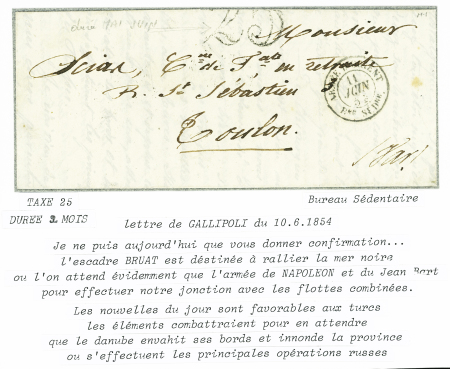 25
Monsieur
Sciau, C.ne de F.ate en retraite
R. St Sébastien
Toulon.
(Var)
11
JUIN
TAXE 25
Bureau Sédentaire
DUREE 3 MOIS
lettre de GALLIPOLI du 10.6.1854
Je ne puis aujourd'hui que vous donner confirmation...
l'escadre BRUAT est déstinée à rallier la mer noire
ou l'on attend évidemment que l'armée de NAPOLEON et du Jean Bart
pour effectuer notre jonction avec les flottes combinées.
Les nouvelles du jour sont favorables aux turcs
les éléments combattraient pour en attendre
que le danube envahit ses bords et innonde la province
ou s'effectuent les principales opérations russes